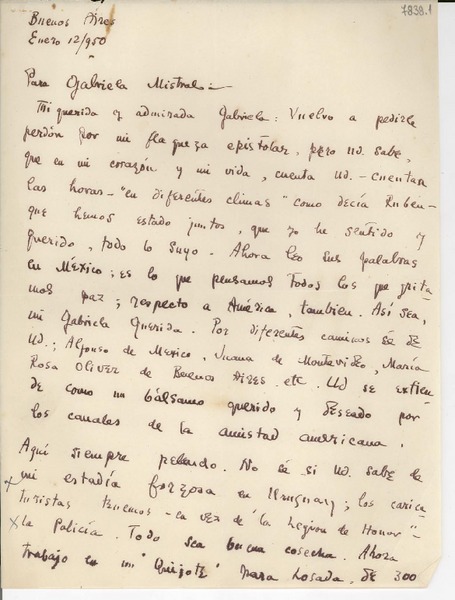 7838.1
Buenos Aires
Enero 12/950
Para Gabriela Mistral :-
Mi querida y admirada Gabriela: Vuelvo a pedirle
perdón por mi flaqueza epistolar, pero Ud. sabe,
que en mi corazón y mi vida, cuenta Ud. - cuentan
las horas - "en diferentes climas" como decía Ruben -
que hemos estado juntos, que yo he sentido y
querido, todo lo suyo. Ahora leo sus palabras
en México; es lo que pensamos todos los que grita-
mos paz; respecto a América, también. Así sea,
mi Gabriela querida. Por diferentes caminos sé de
Ud.; Alfonso de Mexico, Juana de Montevideo, María
Rosa Oliver de Buenos Aires. etc. Ud se extien-
de como un bálsamo querido y deseado por
los canales de la amistad americana.
Aquí siempre peleando. No sé si Ud. sabe de
mi estadía forzosa en Uruguay; los carica-
turistas tenemos - en vez de "la Legion de Honor" -
la Policía. Todo sea buena cosecha. Ahora
trabajo en un "Quijote" para Losada, de 300